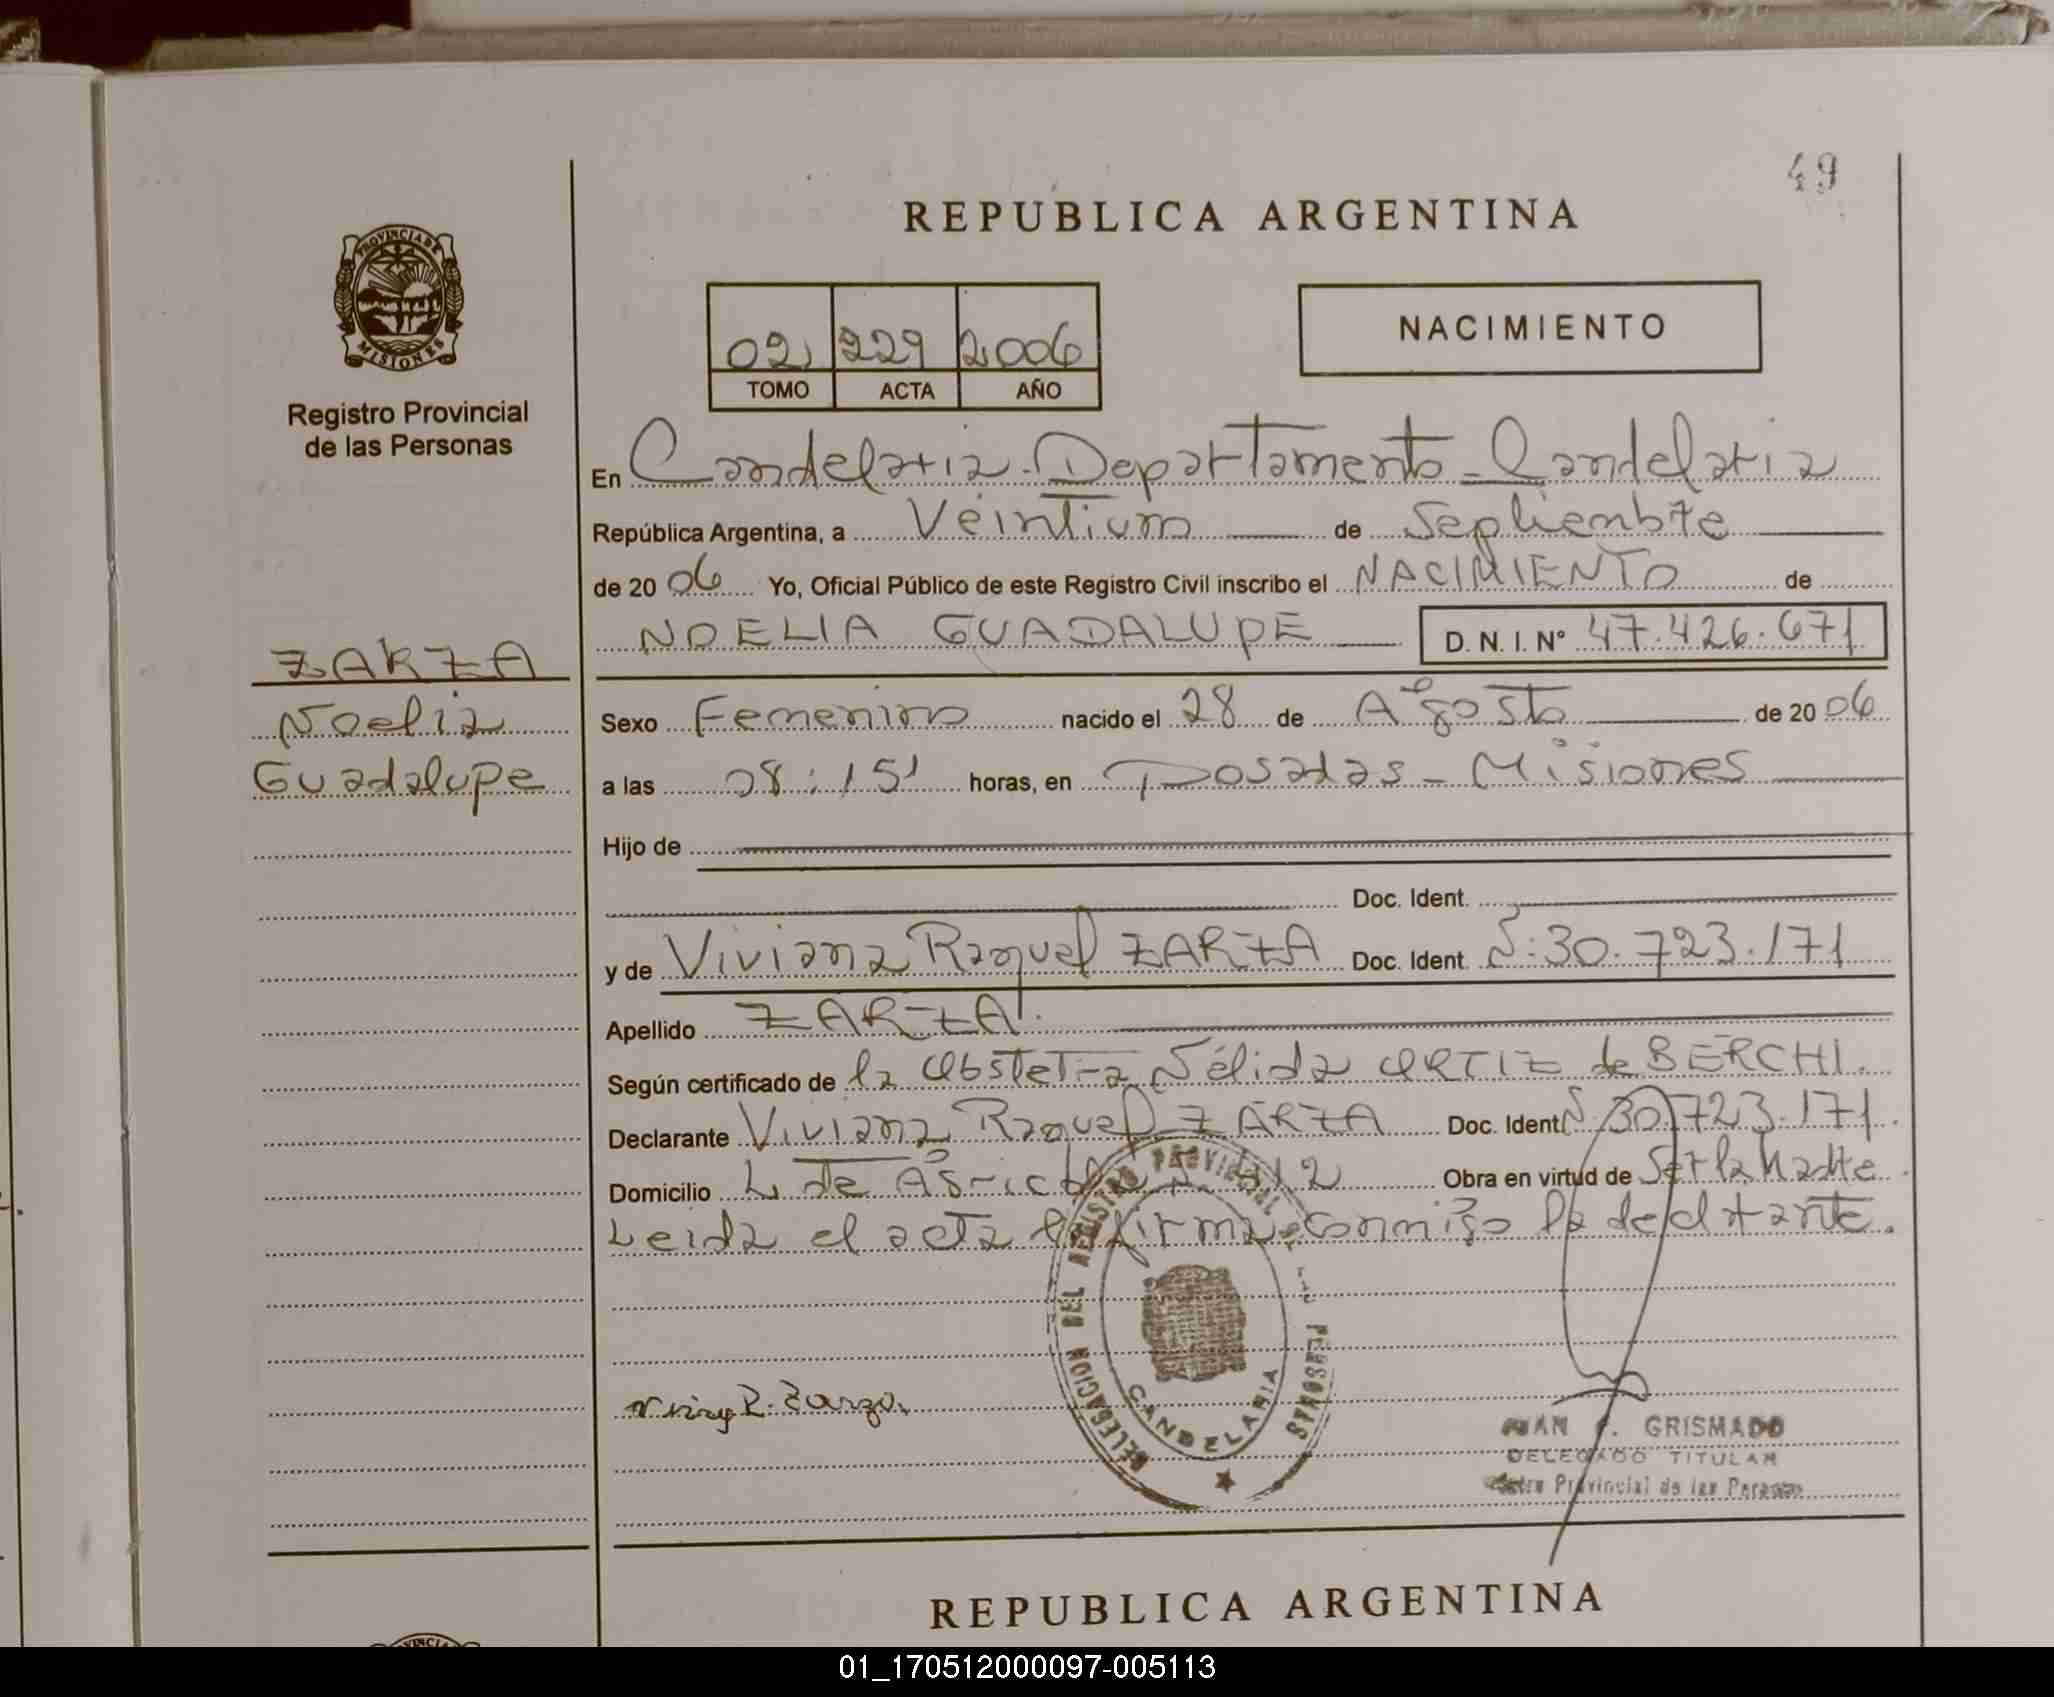 49
REPUBLICA ARGENTINA
PROVINCIA DE
MISIONES
Registro Provincial
de las Personas
02 229 2006
TOMO ACTA AÑO
NACIMIENTO
En Candelaria - Departamento - Candelaria
República Argentina, a Veintium de Septiembre
de 2006 Yo, Oficial Público de este Registro Civil inscribo el NACIMIENTO de
NOELIA GUADALUPE D. N. I. Nº 47.426.671
ZARZA
Noelia
Guadalupe
Sexo Femenino nacido el 28 de Agosto de 2006
a las 08:15 horas, en Posadas - Misiones
Hijo de
Doc. Ident.
y de Viviana Raquel ZARZA Doc. Ident. N: 30.723.171
Apellido ZARZA.
Según certificado de la Obstetra Nélida ORTIZ de BERCHI.
Declarante Viviana Raquel ZARZA Doc. Ident N: 30.723.171.
Domicilio L. de 12 Obra en virtud de Ser la Madre
Leida el acta la firma conmigo la declarante.
DELEGACION DEL REGISTRO PROVINCIAL DE LAS PERSONAS
CANDELARIA
R. Zarza.
JUAN GRISMADO
DELEGADO TITULAR
Provincial de las Personas
REPUBLICA ARGENTINA
01_170512000097-005113